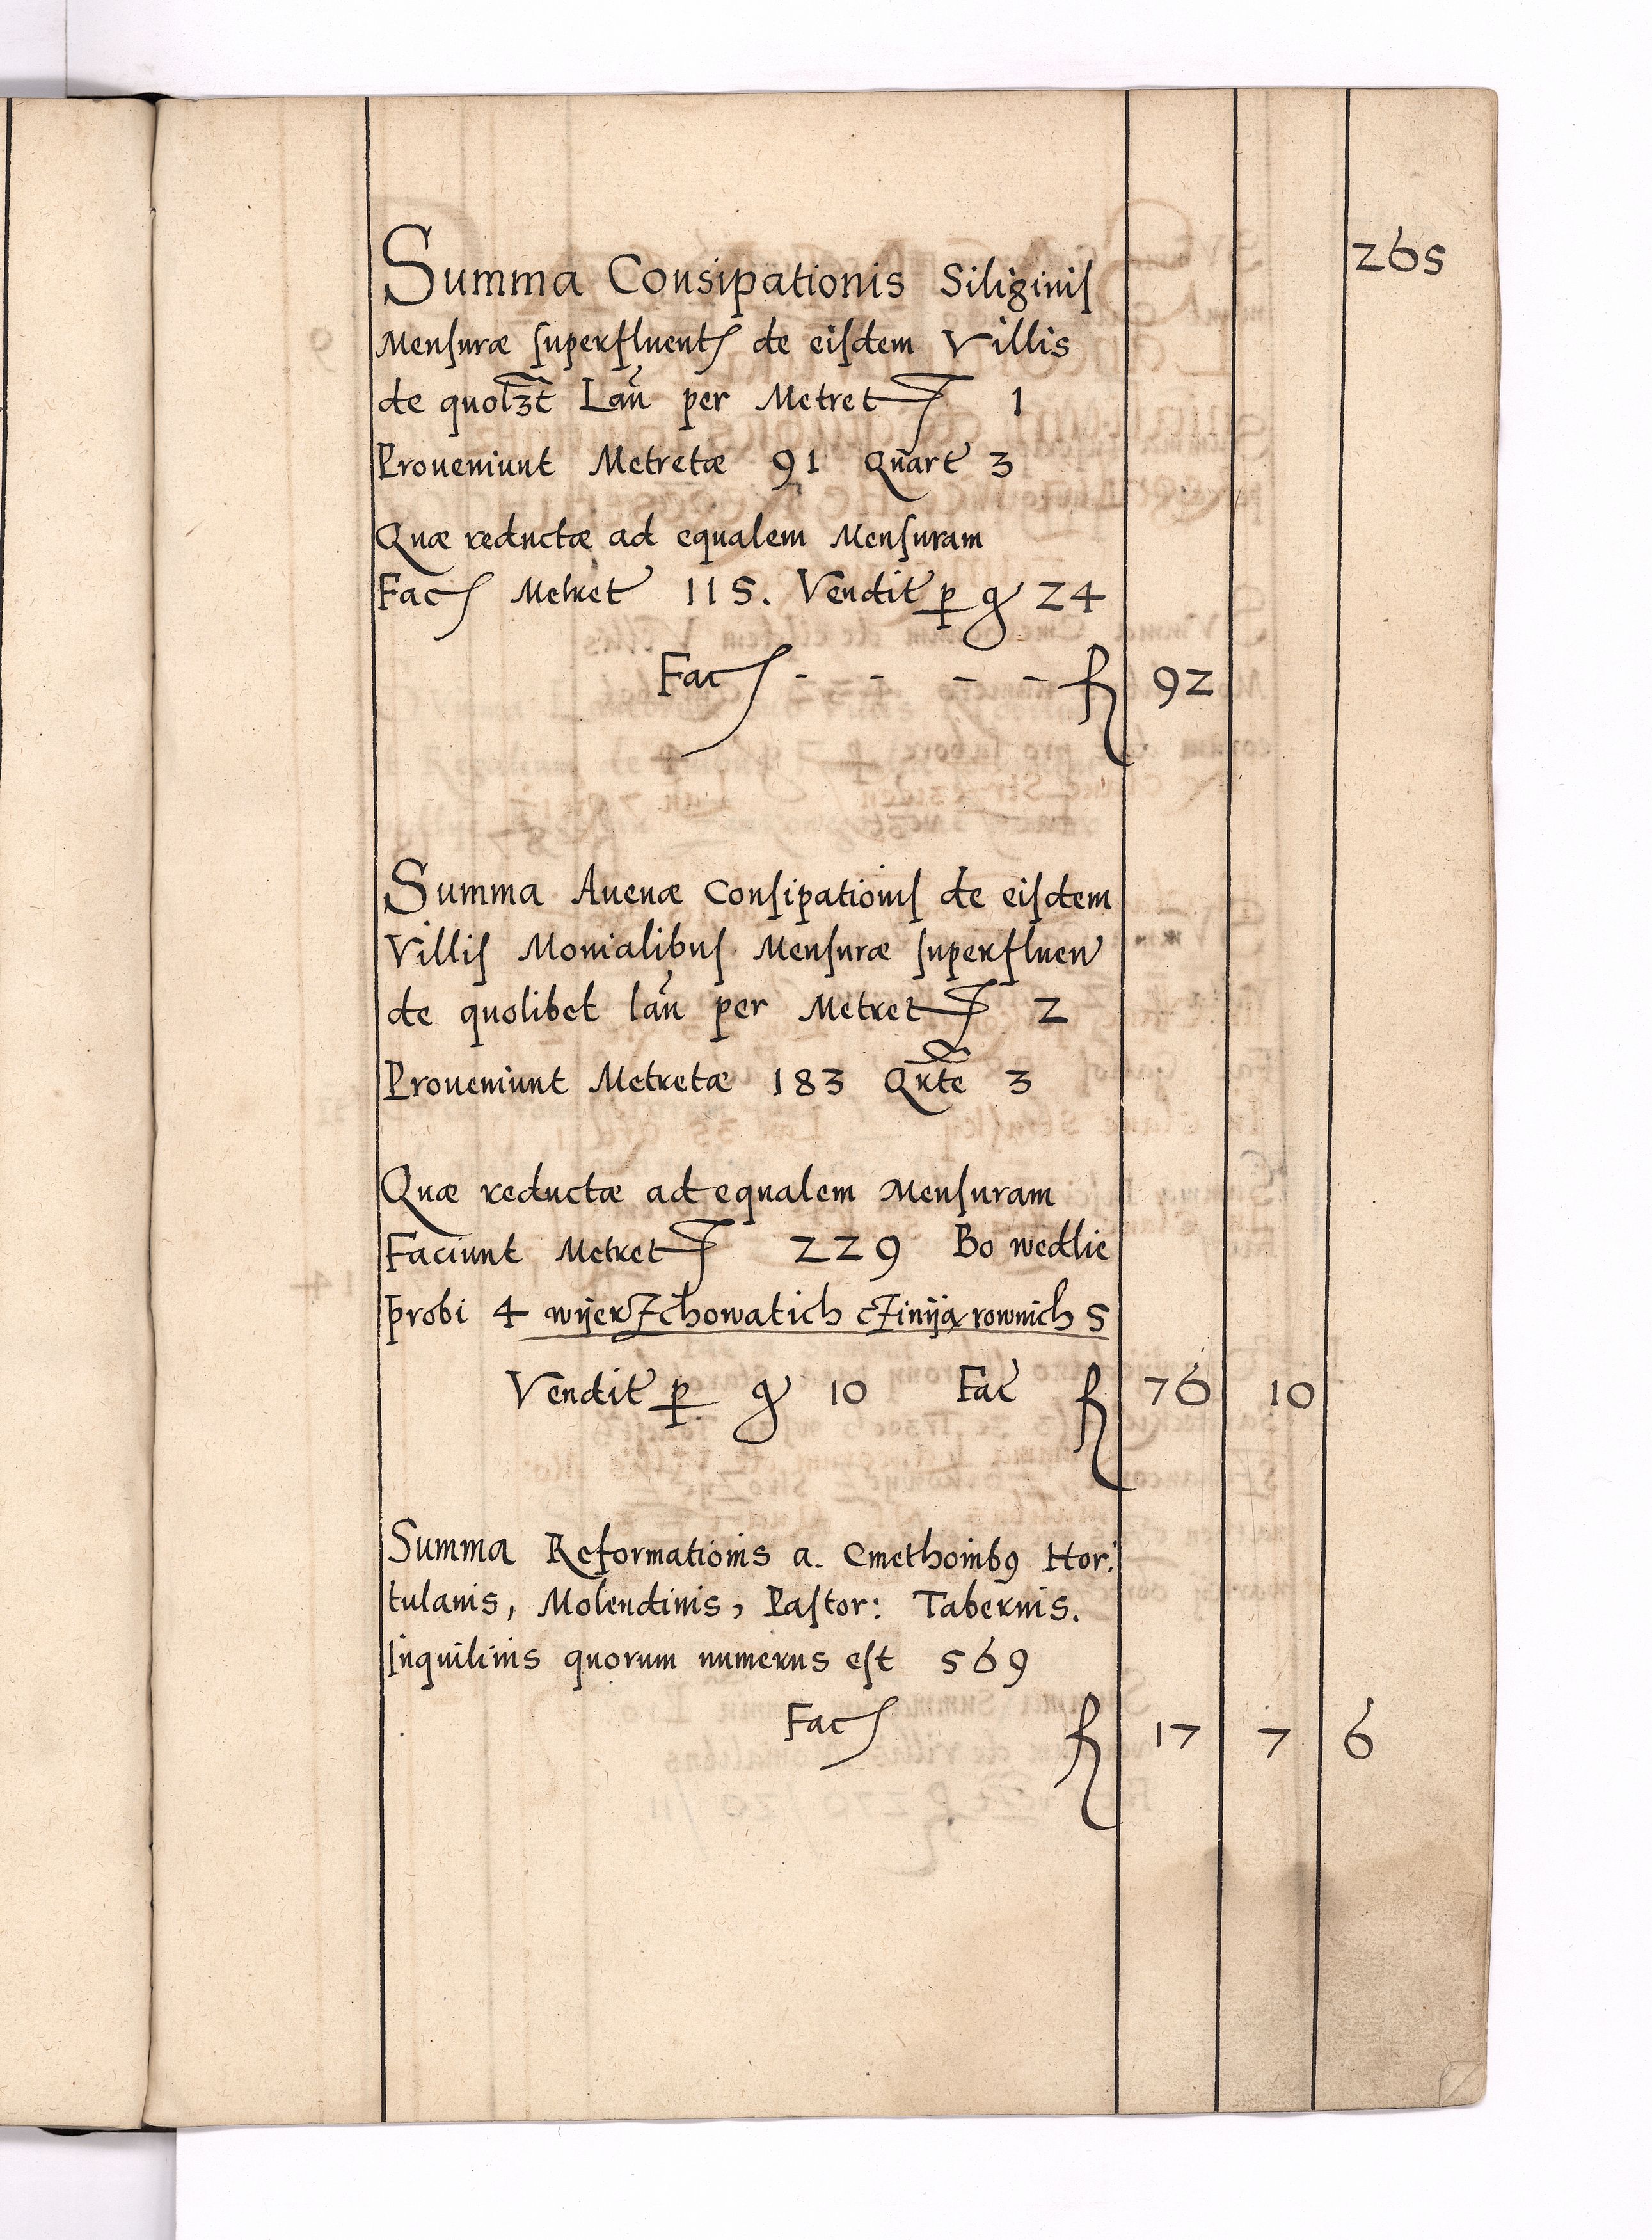 265
Summa Consipationis Siliginis
Mensuræ superfluent de eisdem Villis
de quolʒt Lan per Metret 1
Proueniunt Metretæ 91 Quart 3
Quæ reductæ ad equalem Mensuram
Fac Metret 115. Vendit p g 24
Fac - - - - f 92
Summa Auenæ Consipationis de eisdem
Villis Monialibus Mensuræ superfluen
de quolibet lan per Metret 2
Proueniunt Metretæ 183 Qrte 3
Quæ reductæ ad equalem Mensuram
Faciunt Metret 229 Bo wedlie
probi 4 wijerzchowatich czinija rownich 5
Vendit p g 10 Fac f 76 10
Summa Reformationis a. Cmethonib9 Hor:
tulanis, Molendinis, Pastor: Tabernis.
Inquilinis quorum numerus est 569
Fac f 17 7 6